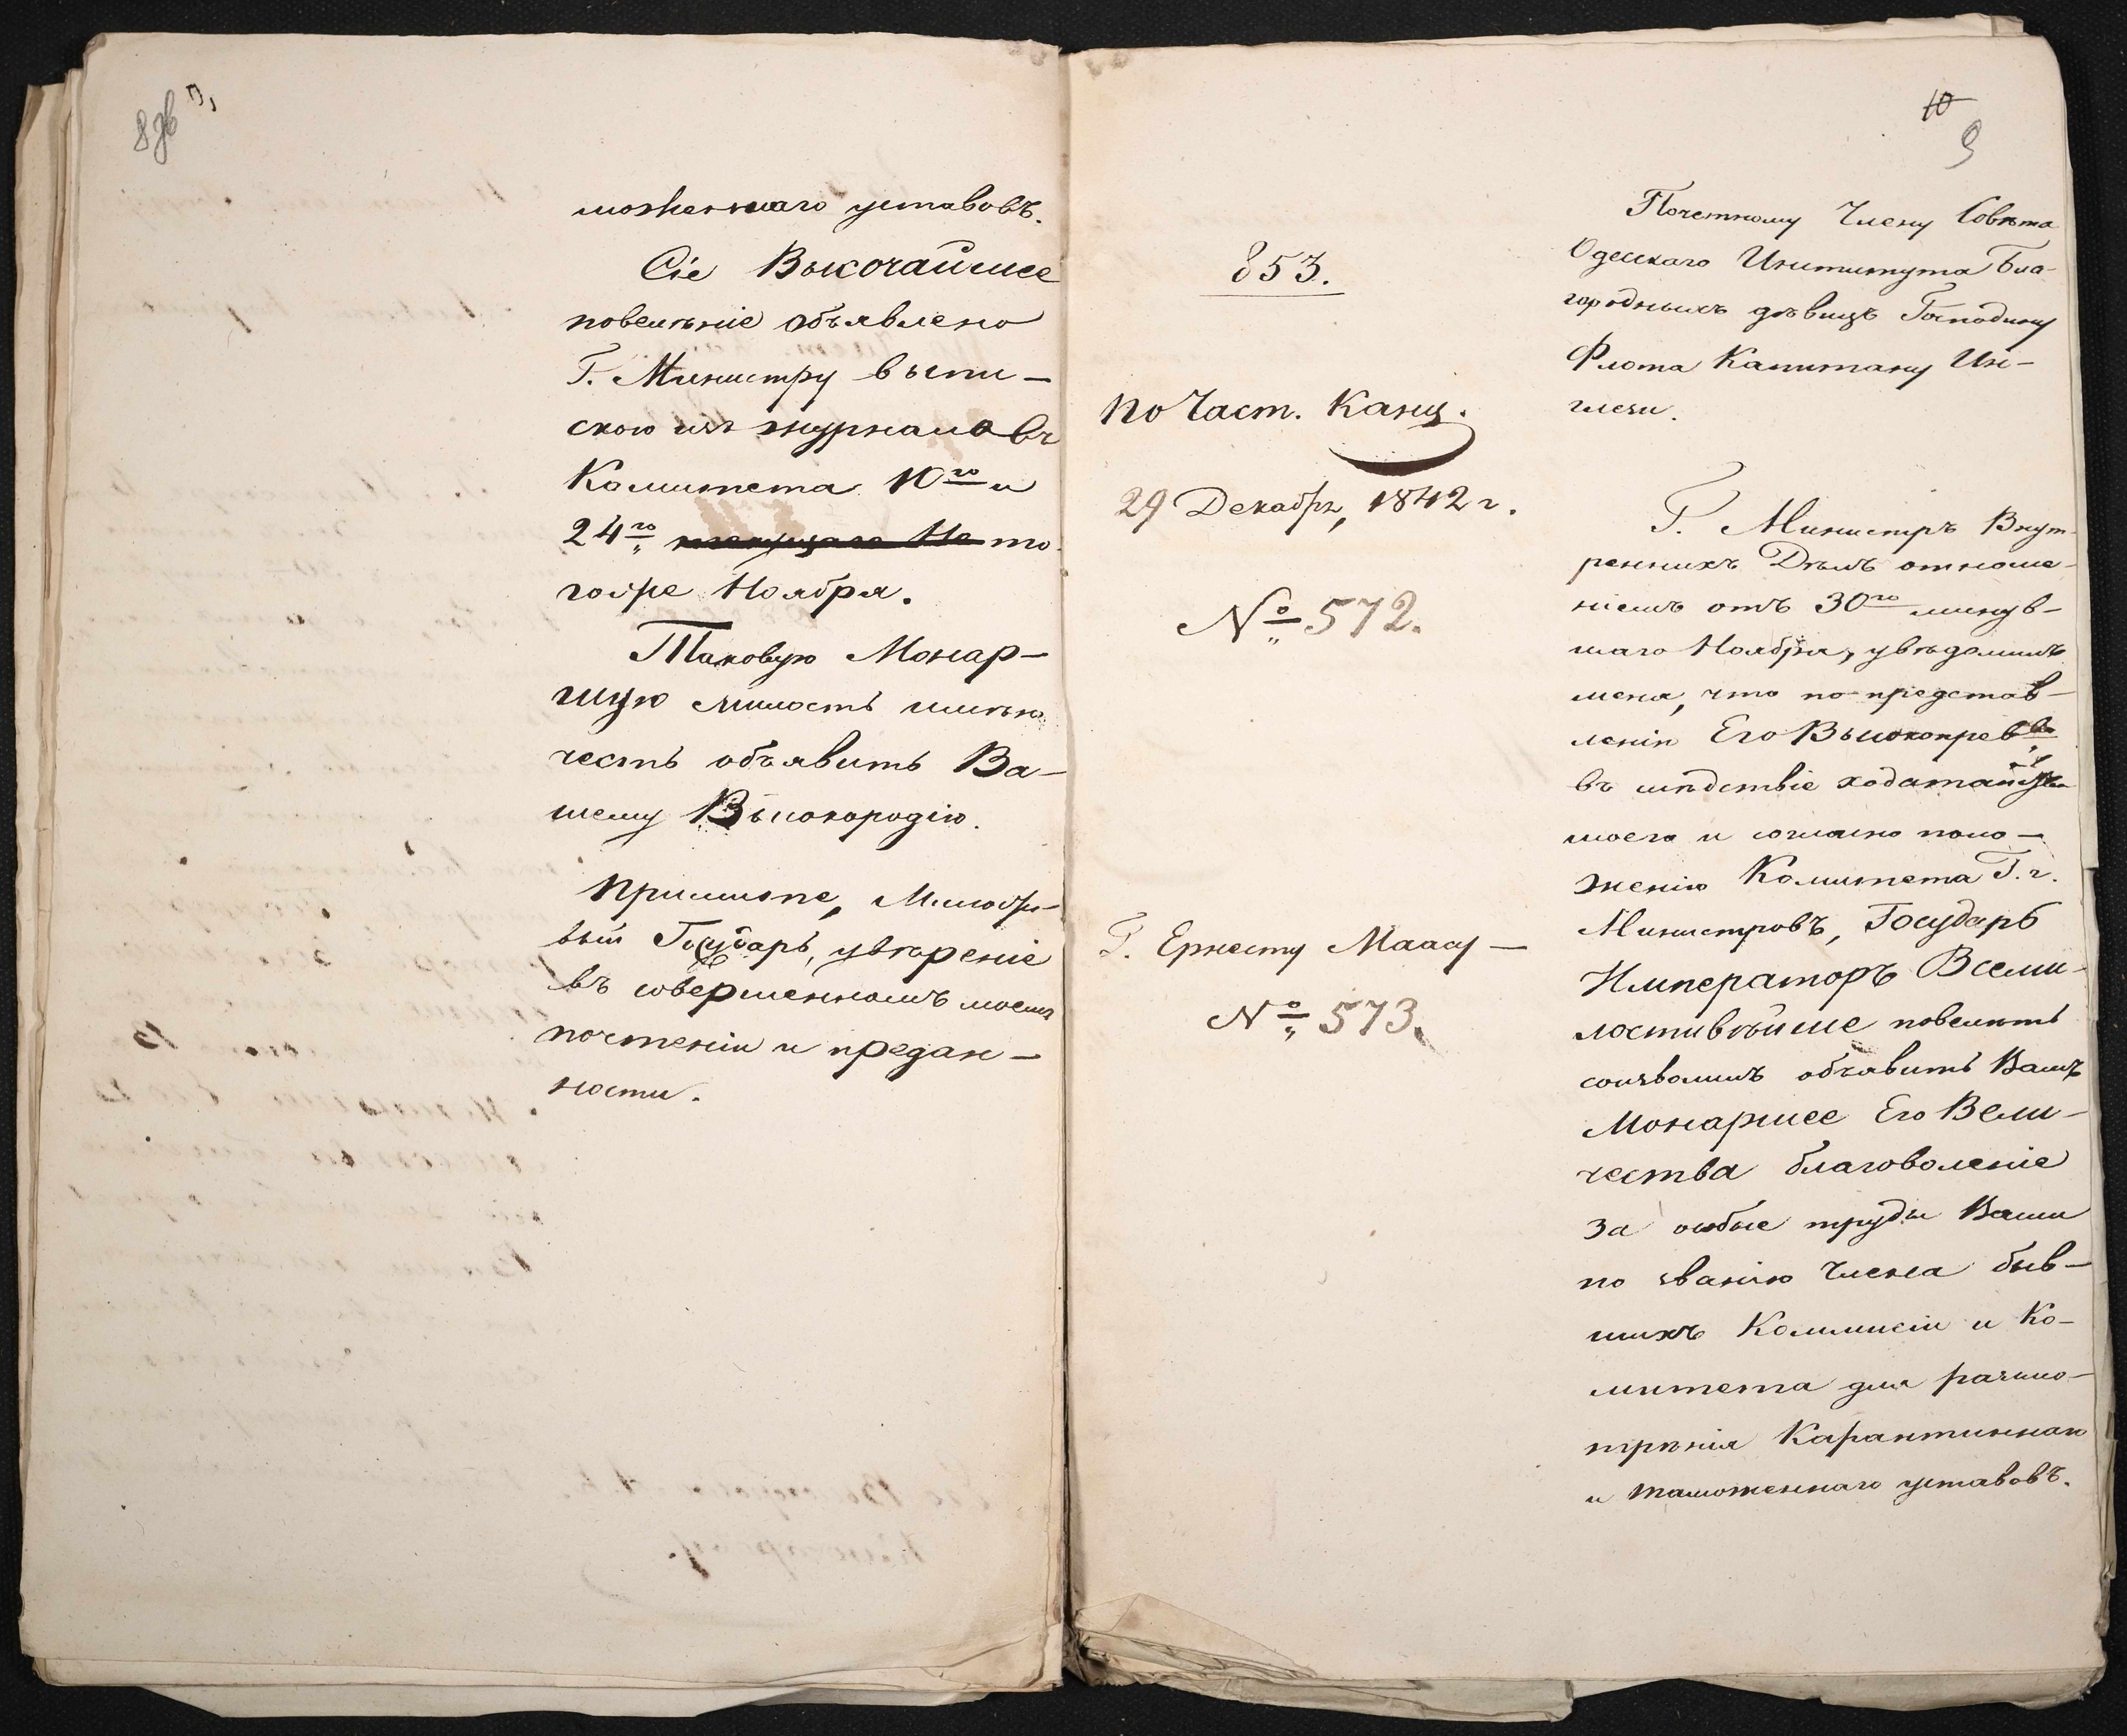 8 об
моженнаго уставовъ.
Сіе Высочайшее
повелѣніе объявлено
Г. Министру выпи-
скою изъ журналовъ
Комитета 10го и
24го текущаго Но то
гоже Ноября.
Таковую Монар-
шую милость имѣю
честь объявить Ва-
шему Высокородію.
Примите, Милости-
вый Государь, увѣреніе
въ совершенномъ моемъ
почтеніи и предан-
ности.
10
9
853.
по Част. Канц.
29 Декабря, 1842 г.
№ 572.
Г. Ернесту Маасу —
№ 573.
Почетному Члену Совѣта
Одесскаго Института Бла-
городныхъ дѣвицъ Господину
Флота Капитану Ин-
глези.
Г. Министръ Внут-
реннихъ Дѣлъ отноше-
ніемъ отъ 30го минув-
шаго Ноября, увѣдомилъ
меня, что по представ-
ленію Его Высокопрев-ва
въ слѣдствіе ходатайства
моего и согласно поло-
женію Комитета Г.г.
Министровъ, Государь
Императоръ Всеми-
лостивѣйше повелѣть
соизволилъ объявить Вамъ
Монаршее Его Вели-
чества благоволеніе
за особые труды Ваши
по званію Члена быв-
шихъ Коммисіи и Ко-
митета для разсмо-
трѣнія Карантиннаго
и таможеннаго уставовъ.